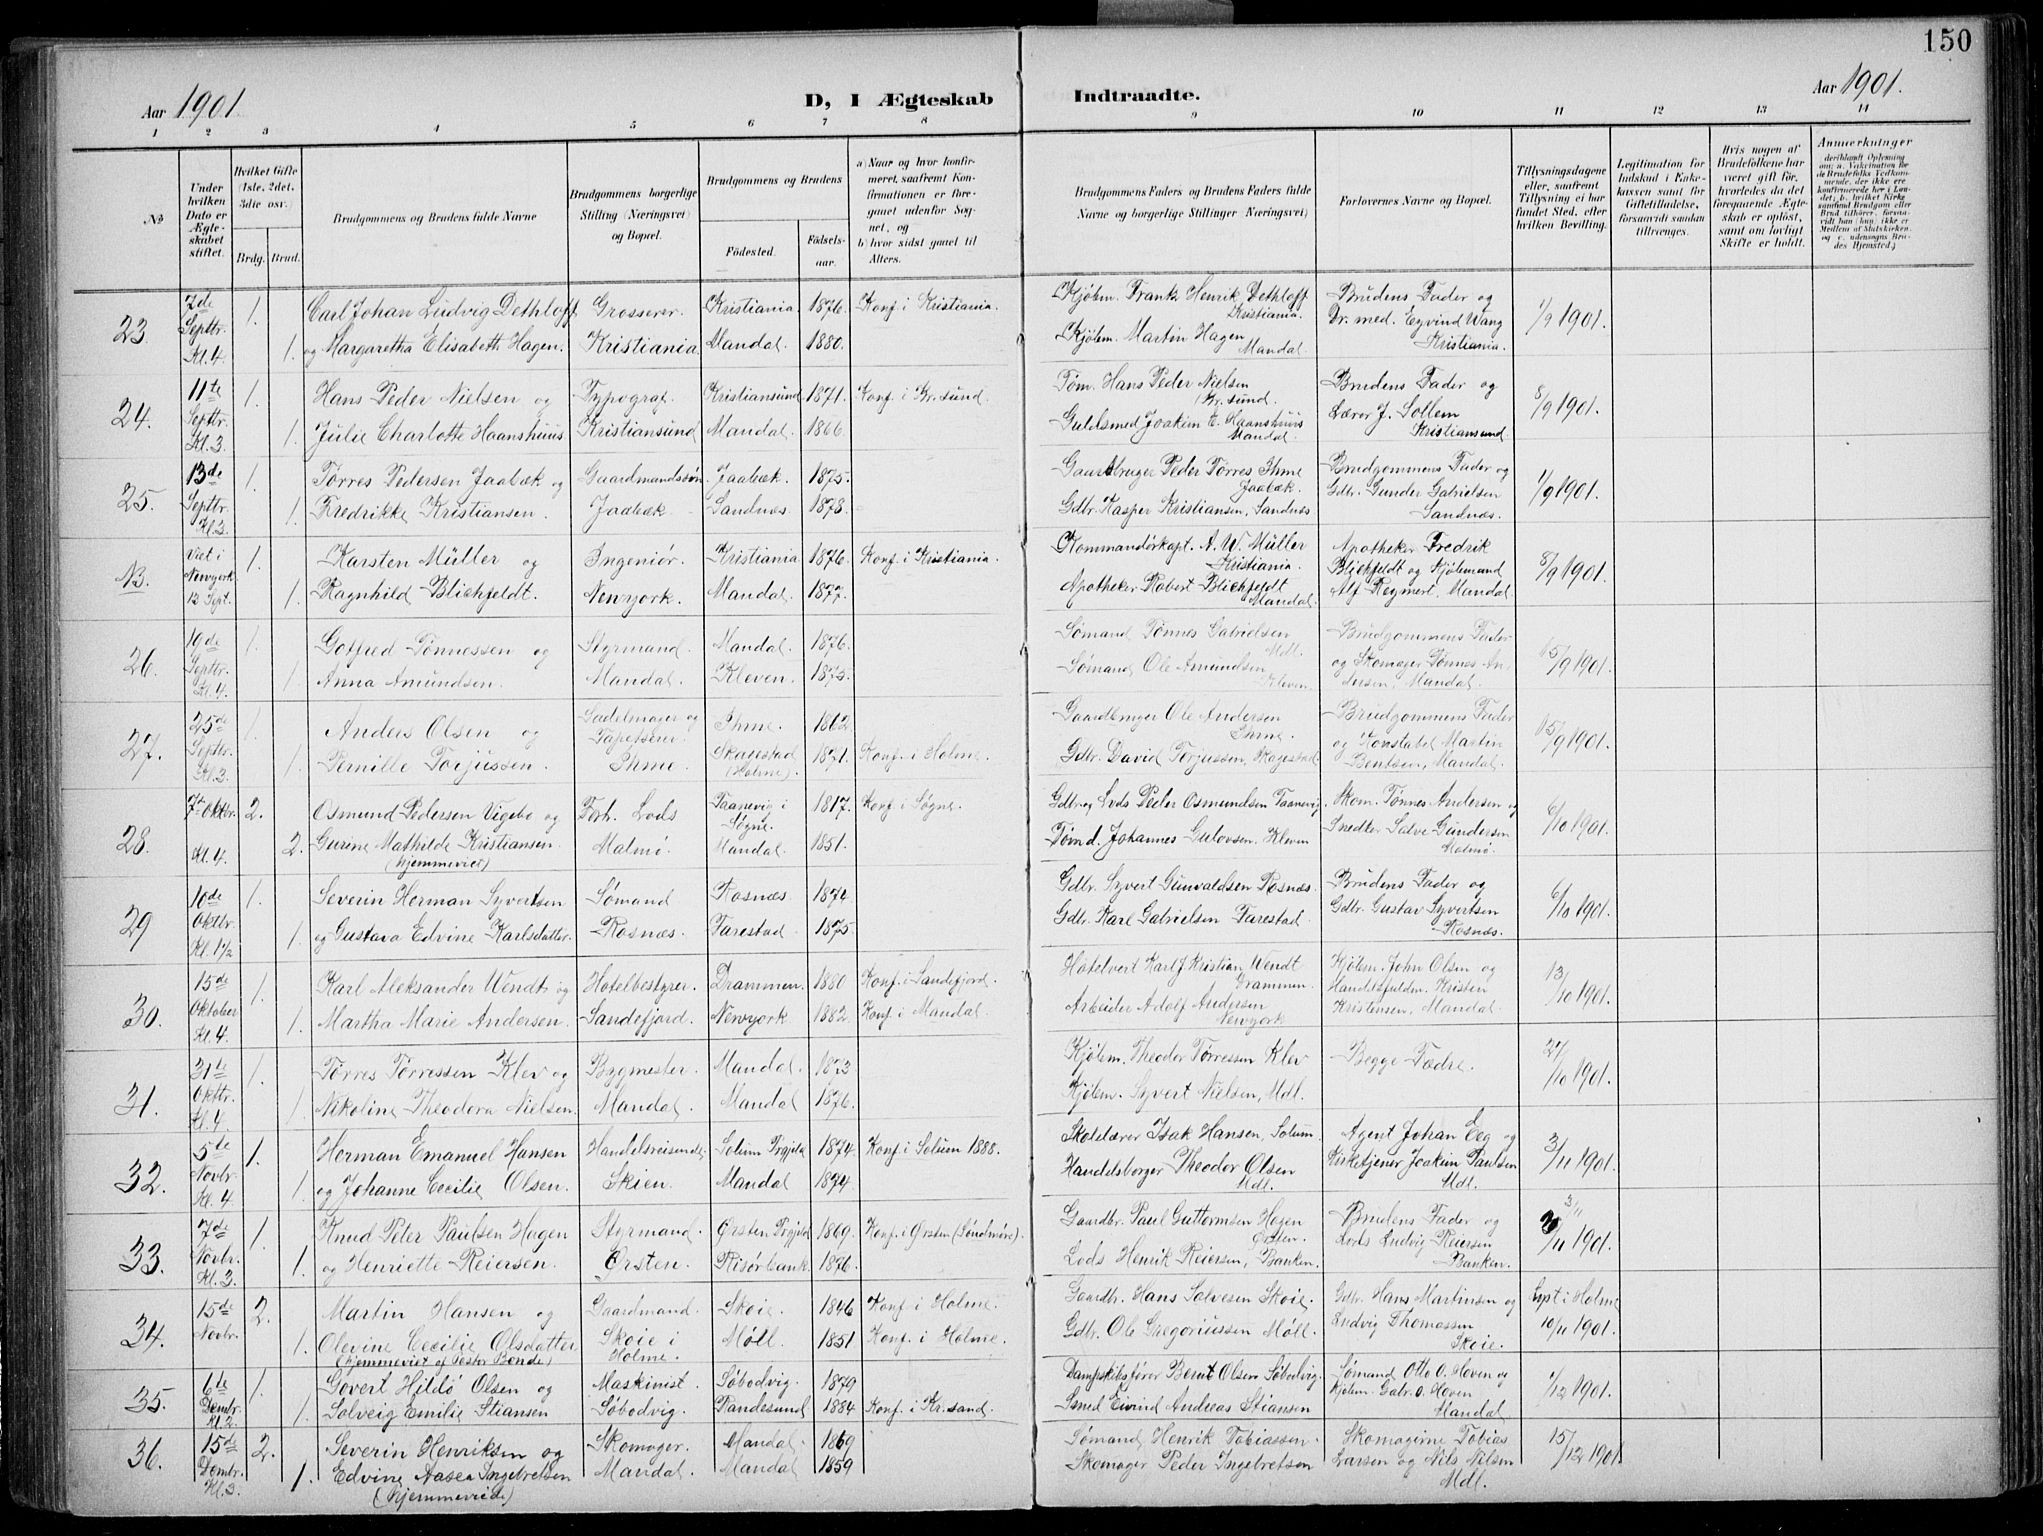 150
Aar 1901.
D, I Ægteskab Indtraadte.
Aar 1901.
1 2 3 4 5 6 7 8 9 10 11 12 13 14
No
Under hvilken Dato er Ægteskabet stiftet.
Hvilket Gifte (1ste. 2det. 3die osv.)
Brdg. Brud.
Brudgommens og Brudens fulde Navne
Brudgommens borgerlige Stilling (Næringsvei) og Bopæl.
Brudgommens og Brudens
Födested. Födselsaar.
a) Naar og hvor konfirmeret, saafremt Konfirmationen er foregaaet udenfor Sognet, og
b) hvor sidst gaaet til Alters.
Brudgommens Faders og Brudens Faders fulde Navne og borgerlige Stillinger Næringsvei)
Forlovernes Navne og Bopæl.
Tillysningsdagene eller, saafremt Tillysning ei har fundet Sted, efter hvilken Bevilling.
Legitimation for Indskud i Enkekassen samt for Giftetilladelse, forsaavidt saadan tiltrænges.
Hvis nogen af Brudefolkene har været gift før, hvorledes da det foregaaende Ægteskab er oplöst, samt om lovligt Skifte er holdt.
Anmærkninger
23. 7de Septbr. Kl. 4. 1. Carl Johan Ludvig Dethloff Grosserer. Kristiania. 1876. Konf. i Kristiania. Kjøbm. Frantz Henrik Dethloff Kristiania. Brudens Fader og 1/9 1901.
1. og Margaretha Elisabeth Hagen. Kristiania. Mandal. 1880. Kjøbm. Martin Hagen Mandal. Dr. med. Eyvind Wang Kristiania.
24. 11te Septbr. Kl. 3 1. Hans Peder Nielsen og Typograf. Kristiansund 1871. Konf. i Kr. sund. Tøm. Hans Peder Nielsen Kr. sund. Brudens Fader og 8/9 1901.
1. Julie Charlotte Haanshuus Kristiansund Mandal. 1866. Guldsmed Joakim E. Haanshuus Mandal. Lærer J. Sollem Kristiansund.
25. 13de Septbr. Kl. 3. 1. Tørres Pedersen Jaabæk og Gaardmandssøn. Jaabæk. 1875. Gaardbruger Peder Tørres Ihme Jaabæk. Brudgommens Fader og 1/9 1901.
1. Fredrikke Kristiansen. Jaabæk Sandnæs 1878. Gdbr. Kasper Kristiansen, Sandnæs Gdbr. Gunder Gabrielsen Sandnæs.
N3. Viet i Newyork 12 Sept. 1. Karsten Müller og Ingeniør. Kristiania 1876. Konf. i Kristiania. Kommandørkapt. A. W. Müller Kristiania. Apotheker Fredrik 8/9 1901.
1. Ragnhild Blichfeldt. Newyork. Mandal. 1877. Apotheker Robert Blichfeldt Mandal. Blichfeldt og Kjøbmand Alf Reymert, Mandal.
26. 19de Septbr. Kl. 4. 1. Gotfred Tønnessen og Styrmand. Mandal. 1876. Sømand Tønnes Gabrielsen Mdl. Brudgommens Fader 15/9 1901.
1. Anna Amundsen. Mandal. Kleven. 1875. Sømand Ole Amundsen Kleven. og Skomager Tønnes Andersen, Mandal.
27. 25de Septbr. Kl. 3. 1. Anders Olsen og Sadelmager og Tapetserer Ihme. 1862 Gaardbruger Ole Andersen Ihme. Brudgommens Fader 15/9 1901.
1. Pernille Torjussen. Ihme. Skagestad (Holme). 1871. Konf. i Holme. Gdbr. David Torjussen, Skagestad. og Konstabel Martin Bentsen, Mandal.
28. 7de Oktbr. Kl. 4. 2. Osmund Pedersen Vigebo og Forh. Lods Taanevig i Søgne. 1817. Konf. i Søgne. Gdbr. og Lods Peder Osmundsen Taanevig Skom. Tønnes Andersen og 6/10 1901.
2. Gurine Mathilde Kristiansen. (hjemmeviet) Malmø. Mandal. 1851. Tømd. Johannes Gulovsen, Kleven Snedker Salve Gundersen Malmø.
29 10de Oktbr. Kl. 1 1/2 1. Severin Herman Syvertsen Sømand Rosnæs 1874 Gdbr. Syvert Gunvaldsen Rosnæs. Brudens Fader og 6/10 1901.
1. og Gustava Edvine Karlsdatter. Rosnæs. Farestad 1875. Gdbr. Karl Gabrielsen Farestad Gdbr. Gustav Syvertsen Rosnæs.
30. 15de Oktober Kl. 4. 1. Karl Aleksander Wendt og Hotelbestyrer. Drammen. 1880 Konf. i Sandefjord. Hotelvert Karl J. Kristian Wendt Drammen. Kjøbm. John Olsen og 13/10 1901.
1. Martha Marie Andersen. Sandefjord. Newyork 1882. Konf. i Mandal. Arbeider Adolf Andersen Newyork Handelsfuldm. Kristen Kristensen, Mandal.
31. 31te Oktbr. Kl. 4. 1. Tørres Tørressen Klev og Bygmester. Mandal. 1873 Kjøbm. Theodor Tørressen Klev Begge Fædre. 27/10 1901.
1. Nikoline Theodora Nielsen. Mandal. Mandal 1876. Kjøbm. Syvert Nielsen, Mdl.
32. 5te Novbr. Kl. 4 1. Herman Emanuel Hansen Handelsreisende Solum Prgjeld 1874. Konf. i Solum 1888. Skolelærer Isak Hansen, Solum. Agent Johan Eeg og 3/11 1901.
1. og Johanne Cecilie Olsen. Skien. Mandal 1874. Handelsborger Theodor Olsen Mdl. Kirketjener Joakim Paulsen Mdl.
33. 7de Novbr. Kl. 3. 1. Knud Peter Paulsen Hagen Styrmand. Ørsten Prgjeld 1869. Konf. i Ørsten (Søndmøre). Gaardbr. Paul Guttormsen Hagen Ørsten. Brudens Fader og 3/11 1901.
1. og Henriette Reiersen. Ørsten. Risørbank. 1876. Lods Henrik Reiersen, Banken. Lods Ludvig Reiersen Banken.
34. 15de Novbr. 2. Martin Hansen og Gaardmand. Skoie. 1846 Konf. i Holme. Gaardbr. Hans Salvesen Skoie. Gdbr. Hans Martinsen og Lyst i Holme
1. Olevine Cecilie Olsdatter (hjemmeviet af Pastor Bonde) Skoie i Holme. Møll. 1851 Konf. i Holme. Gdbr. Ole Gregoriussen Møll. Ludvig Thomassen Skoie. 10/11 1901.
35. 6te Dcmbr. Kl. 2. 1. Govert Hildø Olsen og Maskinist. Søbodvig. 1879 Dampskibsfører Bernt Olsen Søbodvig. Sømand Otto O. Hoven og 1/12 1901.
1. Solveig Emilie Stiansen Søbodvig. Randesund 1884 Konf. i Kr. sand. Smed Eivind Andreas Stiansen Kjøbm. Gabr. O. Hoven Mandal.
36. 15de Dcmbr. Kl. 3. 2. Severin Henriksen og Skomager. Mandal. 1869 Sømand Henrik Tobiassen. Skomagerne Tobias 15/12 1901.
1. Edvine Aasea Ingebretsen (hjemmeviede) Mandal. Mandal 1859 Skomager Peder Ingebretsen Larsen og Nils Nilsen Mdl.